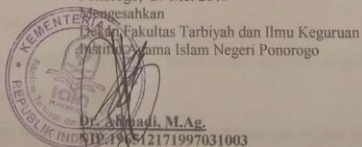 Mengesahkan
Dekan Fakultas Tarbiyah dan Ilmu Keguruan
Institut Agama Islam Negeri Ponorogo
KEMENTE
REPUBLIK IND
Dr. Ahmadi, M.Ag.
NIP.196512171997031003